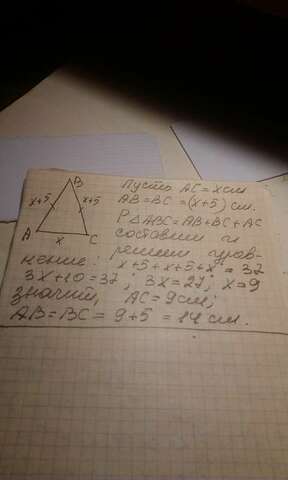 B
x+5
x+5
A
x
C
Пусть AC = x см
AB = BC = (x+5) см.
P △ABC = AB + BC + AC
составим и
решим урав-
нение: x+5+x+5+x = 37
3x+10=37; 3x=27; x=9
значит, AC = 9см;
AB = BC = 9+5 = 14 см.